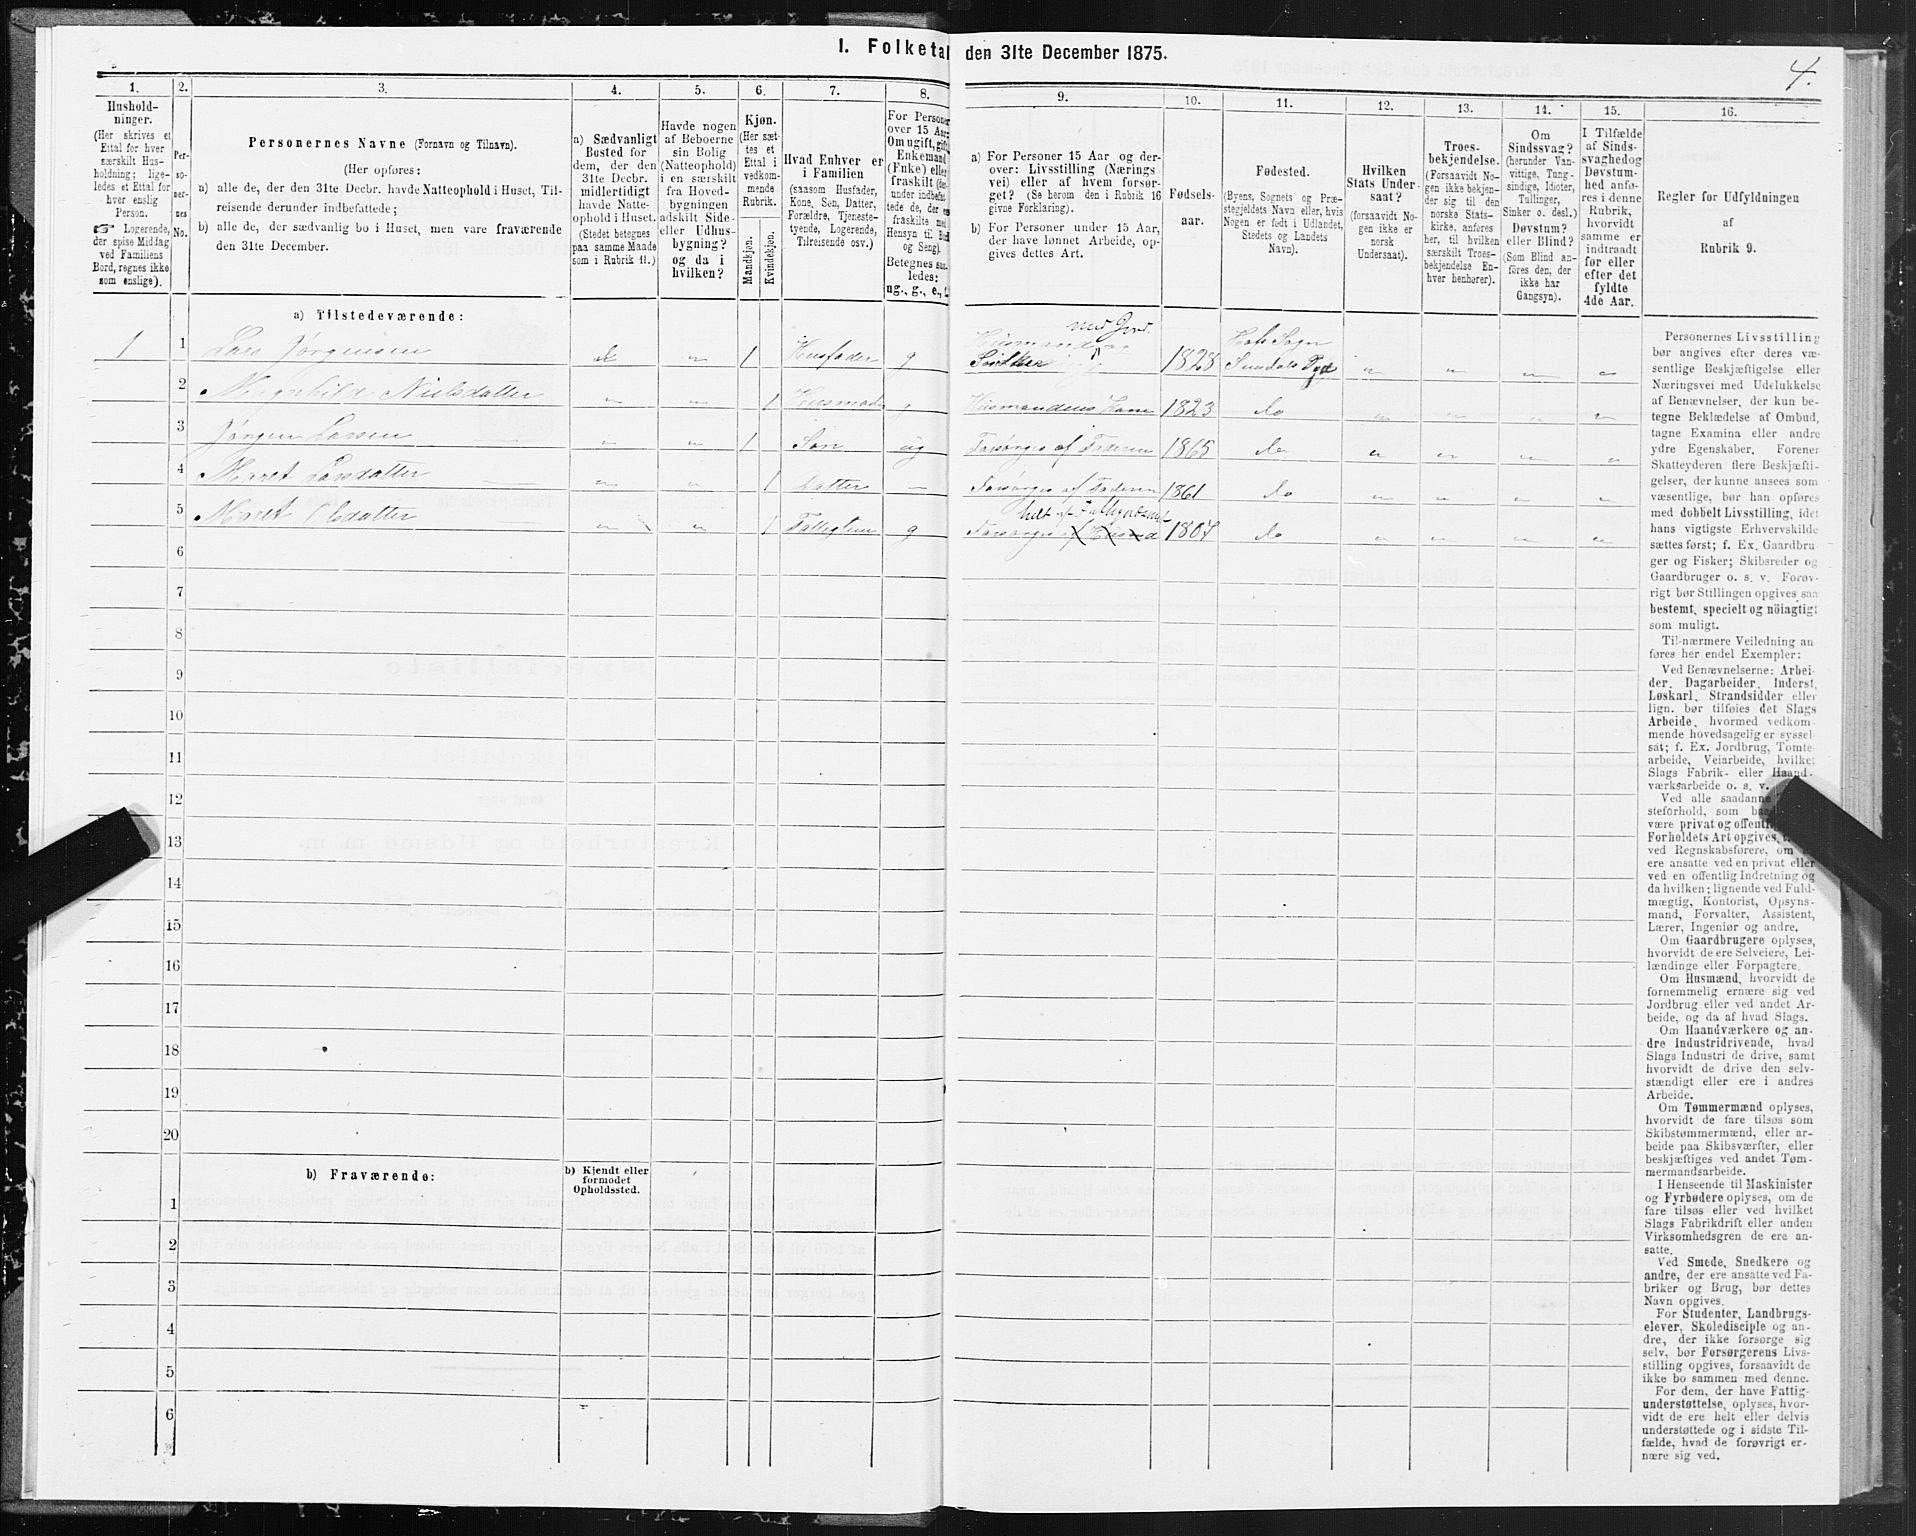 1. Folketal den 31te December 1875.
4.
1.
Hushold-
ninger.
(Her skrives et
Ettal for hver
særskilt Hus-
holdning; lige-
ledes et Ettal for
hver enslig
Person.
☞ Logerende,
der spise Middag
ved Familiens
Bord, regnes ikke
som enslige).
2.
Per-
so-
ner-
nes
No.
3.
Personernes Navne (Fornavn og Tilnavn).
(Her opføres:
a) alle de, der den 31te Decbr. havde Natteophold i Huset, Til-
reisende derunder indbefattede;
b) alle de, der sædvanlig bo i Huset, men vare fraværende
den 31te December.
4.
a) Sædvanligt
Bosted for
dem, der den
31te Decbr.
midlertidigt
havde Natte-
ophold i Huset.
(Stedet betegnes
paa samme Maade
som i Rubrik 11.)
5.
Havde nogen
af Beboerne
sin Bolig
(Natteophold)
i en særskilt
fra Hoved-
bygningen
adskilt Side-
eller Udhus-
bygning?
og da i
hvilken?
6.
Kjøn.
(Her sæt-
tes et
Ettal i
vedkom-
mende
Rubrik.
Mandkjøn.
Kvindekjøn.
7.
Hvad Enhver er
i Familien
(saasom Husfader,
Kone, Søn, Datter,
Forældre, Tjeneste-
tyende, Logerende,
Tilreisende osv.)
8.
For Personer
over 15 Aar:
Om ugift, gift,
Enkemand
(Enke) eller
fraskilt (der-
under indbefat-
tede de, der ere
fraskilte med
Hensyn til Bord
og Seng).
Betegnes saa-
ledes:
ug., g., e., f.
9.
a) For Personer 15 Aar og der-
over: Livsstilling (Nærings-
vei) eller af hvem forsør-
get? (Se herom den i Rubrik 16
givne Forklaring).
b) For Personer under 15 Aar,
der have lønnet Arbeide, op-
gives dettes Art.
10.
Fødsels-
aar.
11.
Fødested.
(Byens, Sognets og Præ-
stegjeldets Navn eller, hvis
Nogen er født i Udlandet,
Stedets og Landets
Navn).
12.
Hvilken
Stats Under-
saat?
(forsaavidt No-
gen ikke er
norsk
Undersaat).
13.
Troes-
bekjendelse.
(Forsaavidt No-
gen ikke bekjen-
der sig til den
norske Stats-
kirke, anføres
her, til hvilken
særskilt Troes-
bekjendelse En-
hver henhører).
14.
Om
Sindssvag?
(herunder Van-
vittige, Tung-
sindige, Idioter,
Tullinger,
Sinker o. desl.)
Døvstum?
eller Blind?
(Som Blind an-
føres den, der
ikke har
Gangsyn).
15.
I Tilfælde
af Sinds-
svaghedog
Døvstum-
hed anfø-
res i denne
Rubrik,
hvorvidt
samme er
indtraadt
før eller
efter det
fyldte
4de Aar.
16.
Regler for Udfyldningen
af
Rubrik 9.
a) Tilstedeværende:
1 1 Lars Jørgensen 1 Husfader g Husmand med Jord 1828 Sundals
2 Magnhild Nielsdatter 1 g Husmandens Kone 1823 do
3 Jørgen Larsen 1 Søn ug Forsørges af Faderen 1865 do
4 Maret Larsdatter 1 Datter Forsørges af Faderen 1861 do
5 Maret Olsdatter 1 g Forsørges helt af 1807 do
6
7
8
9
10
11
12
13
14
15
16
17
18
19
20
b) Fraværende:
b) Kjendt eller
formodet
Opholdssted.
1
2
3
4
5
6
Personernes Livsstilling
bør angives efter deres væ-
sentlige Beskjæftigelse eller
Næringsvei med Udelukkelse
af Benævnelser, der kun be-
tegne Beklædelse af Ombud,
tagne Examina eller andre
ydre Egenskaber. Forener
Skatteyderen flere Beskjæfti-
gelser, der kunne ansees som
væsentlige, bør han opføres
med dobbelt Livsstilling, idet
hans vigtigste Erhvervskilde
sættes først; f. Ex. Gaardbru-
ger og Fisker; Skibsreder og
Gaardbruger o. s. v. Forøv-
rigt bør Stillingen opgives saa
bestemt, specielt og nöiagtigt
som muligt.
Til nærmere Veiledning an
føres her endel Exempler:
Ved Benævnelserne: Arbei-
der, Dagarbeider, Inderst,
Løskarl, Strandsidder eller
lign. bør tilføies det Slags
Arbeide, hvormed vedkom-
mende hovedsagelig er syssel-
sat; f. Ex. Jordbrug, Tomte-
arbeide, Veiarbeide, hvilket
Slags Fabrik- eller Haand-
værksarbeide o. s. v.
Ved alle saadanne
steforhold, som
være privat og offentlig
Forholdets Art opgives,
ved Regnskabsførere, om
ere ansatte ved en privat eller
ved en offentlig Indretning og
da hvilken; lignende ved Fuld-
mægtig, Kontorist, Opsyns-
mand, Forvalter, Assistent,
Lærer, Ingeniør og andre.
Om Gaardbrugere oplyses,
hvorvidt de ere Selveiere, Lei-
lændinge eller Forpagtere.
Om Husmænd, hvorvidt de
fornemmelig ernære sig ved
Jordbrug eller ved andet Ar-
beide, og da af hvad Slags.
Om Haandværkere og an-
dre Industridrivende, hvad
Slags Industri de drive, samt
hvorvidt de drive den selv-
stændigt eller ere i andres
Arbeide.
Om Tømmermænd oplyses,
hvorvidt de fare tilsøs som
Skibstømmermænd, eller ar-
beide paa Skibsværfter, eller
beskjæftiges ved andet Tøm-
mermandsarbeide.
I Henseende til Maskinister
og Fyrbødere oplyses, om de
fare tilsøs eller ved hvilket
Slags Fabrikdrift eller anden
Virksomhedsgren de ere an-
satte.
Ved Smede, Snedkere og
andre, der ere ansatte ved Fa-
briker og Brug, bør dettes
Navn opgives.
For Studenter, Landbrugs-
elever, Skoledisciple og an-
dre, der ikke forsørge sig
selv, bør Forsørgerens Livs-
stilling opgives, forsaavidt de
ikke bo sammen med denne.
For dem, der have Fattig-
understøttelse, oplyses, hvor-
vidt de ere helt eller delvis
understøttede og i sidste Til-
fælde, hvad de forøvrigt er-
nære sig ved.